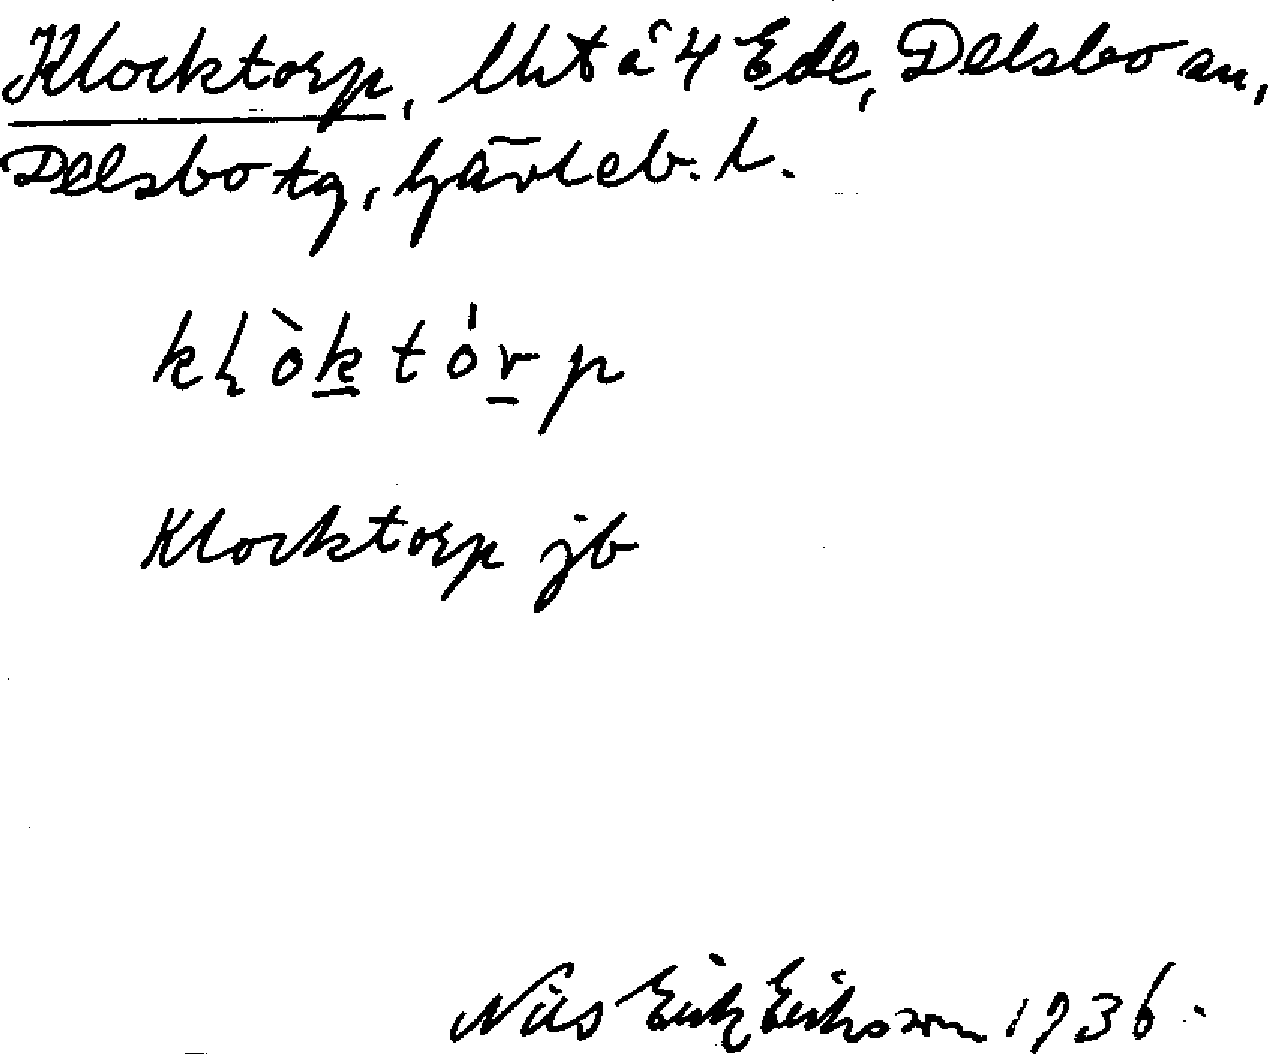 Klocktorp, lht å 4 Ede, Delsbo sn,
Delsbo tg, Gävleb. l.
kḷò̱kt óṟp
Klocktorp jb
Nils Erik Eriksson 1936.